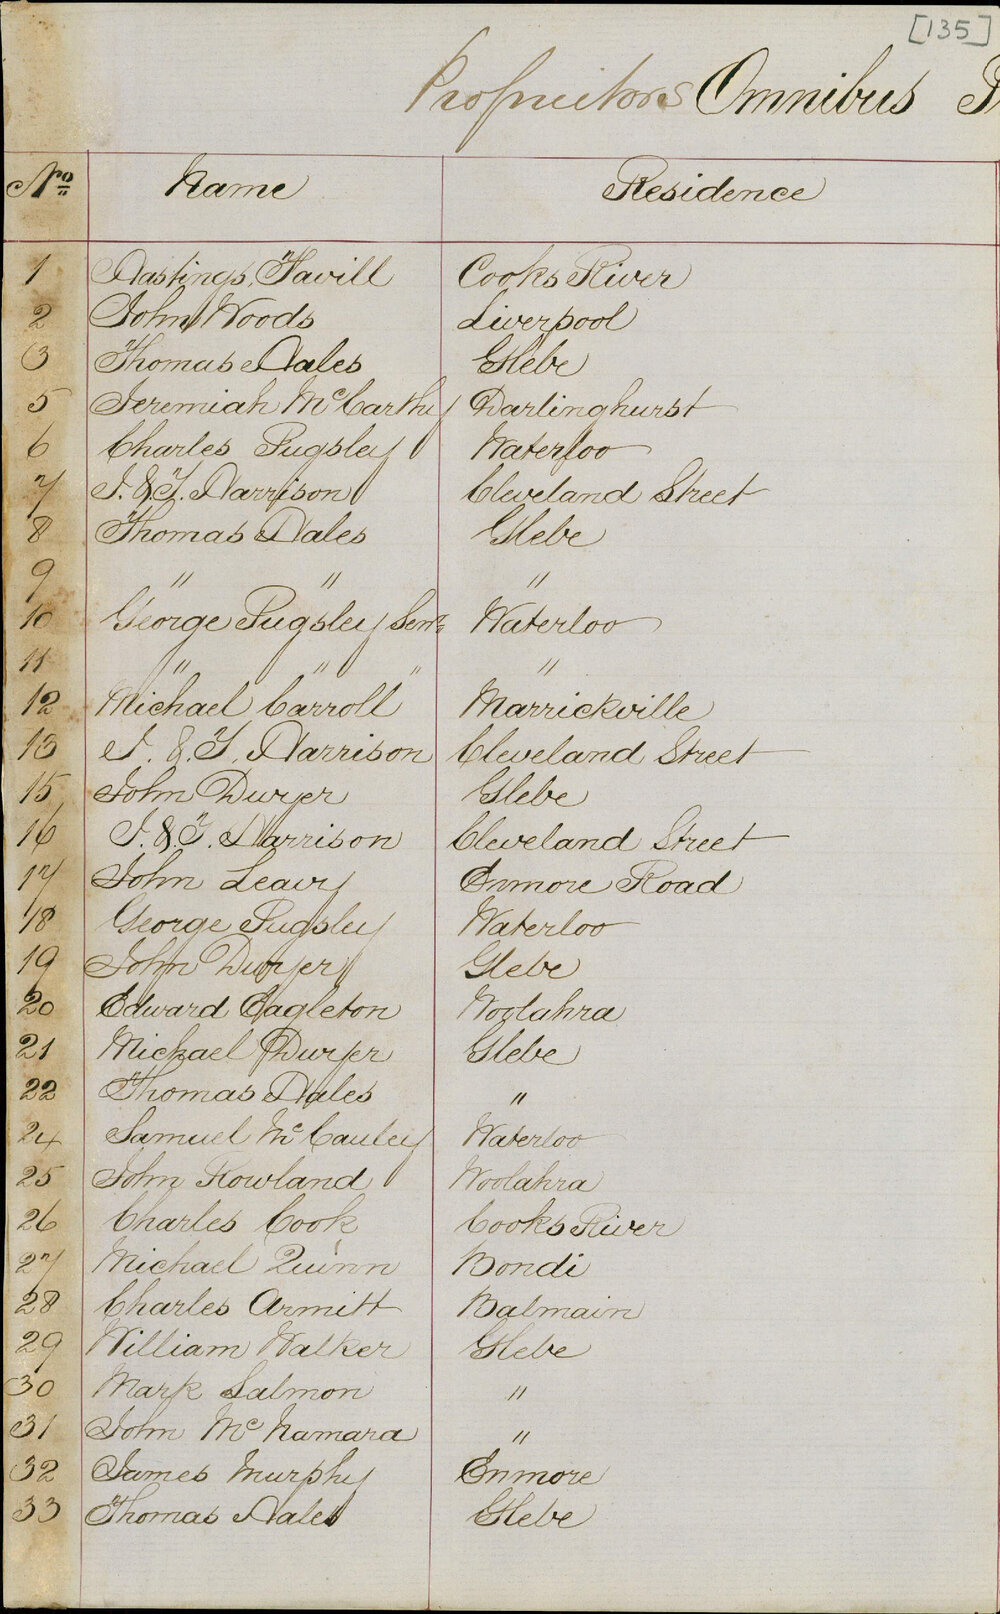 [135]
Proprietors Omnibus
No. Name Residence
1 Hastings Tavill Cooks River
2 John Woods Liverpool
3 Thomas Hales Glebe
5 Jeremiah McCarthy Darlinghurst
6 Charles Pugsley Waterloo
7 J. & T. Harrison Cleveland Street
8 Thomas Hales Glebe
9 " " "
10 George Pugsley Senr. Waterloo
11 " " " "
12 Michael Carroll Marrickville
13 J. & T. Harrison Cleveland Street
15 John Dwyer Glebe
16 J. & T. Harrison Cleveland Street
17 John Leavy Enmore Road
18 George Pugsley Waterloo
19 John Dwyer Glebe
20 Edward Eagleton Woolahra
21 Michael Dwyer Glebe
22 Thomas Hales "
24 Samuel McCauley Waterloo
25 John Rowland Woolahra
26 Charles Cook Cooks River
27 Michael Quinn Bondi
28 Charles Armitt Balmain
29 William Walker Glebe
30 Mark Salmon "
31 John McNamara "
32 James Murphy Enmore
33 Thomas Hales Glebe